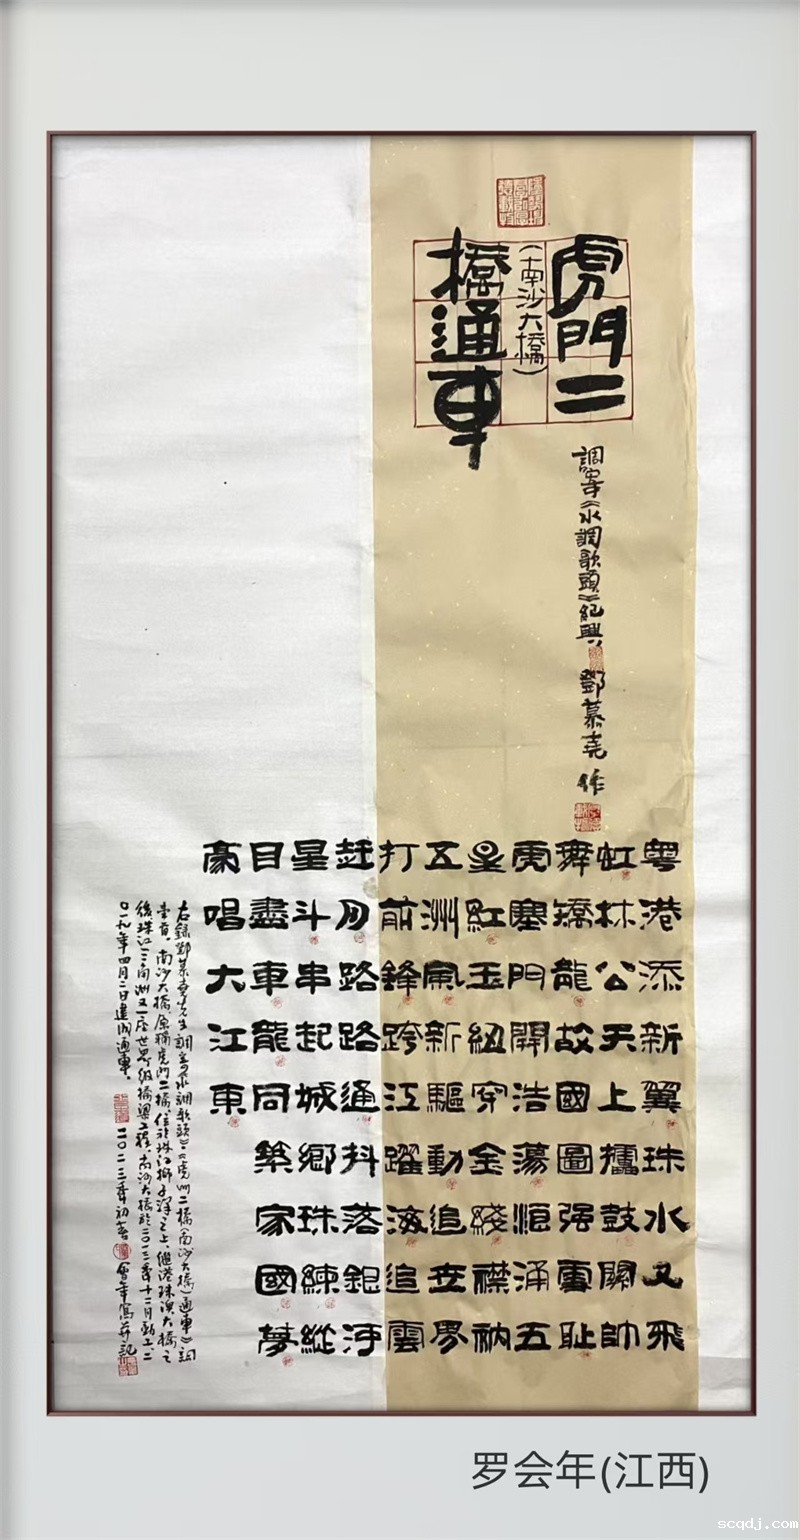 虎門二
(南沙大橋)
橋通車
調寄《水調歌頭》紀興 鄧慕堯 作
粤港添新翼珠水又飛
虹林公天上擂鼓關帥
舞矯龍故國圖强雪恥
虎塞門開浩蕩涌五
星紅玉紐穿金綫襟衲
五洲風新驅動追世界
打前鋒跨江躍海追雲
赶月路路通抖落銀河
星斗串起城鄉珠練縱
目盡車龍同築家國夢
豪唱大江東
右録鄧慕堯先生調寄《水調歌頭》·《虎門二橋(南沙大橋)通車》詞
壹首。南沙大橋,原稱虎門二橋,位於珠江獅子洋之上,繼港珠澳大橋之
後珠江三角洲又一座世界級橋梁工程。南沙大橋於二〇一三年十二月動工,二
〇一九年四月二日建成通車。 二〇二三年初春 會年寫并記
罗会年(江西)
scqdj.com